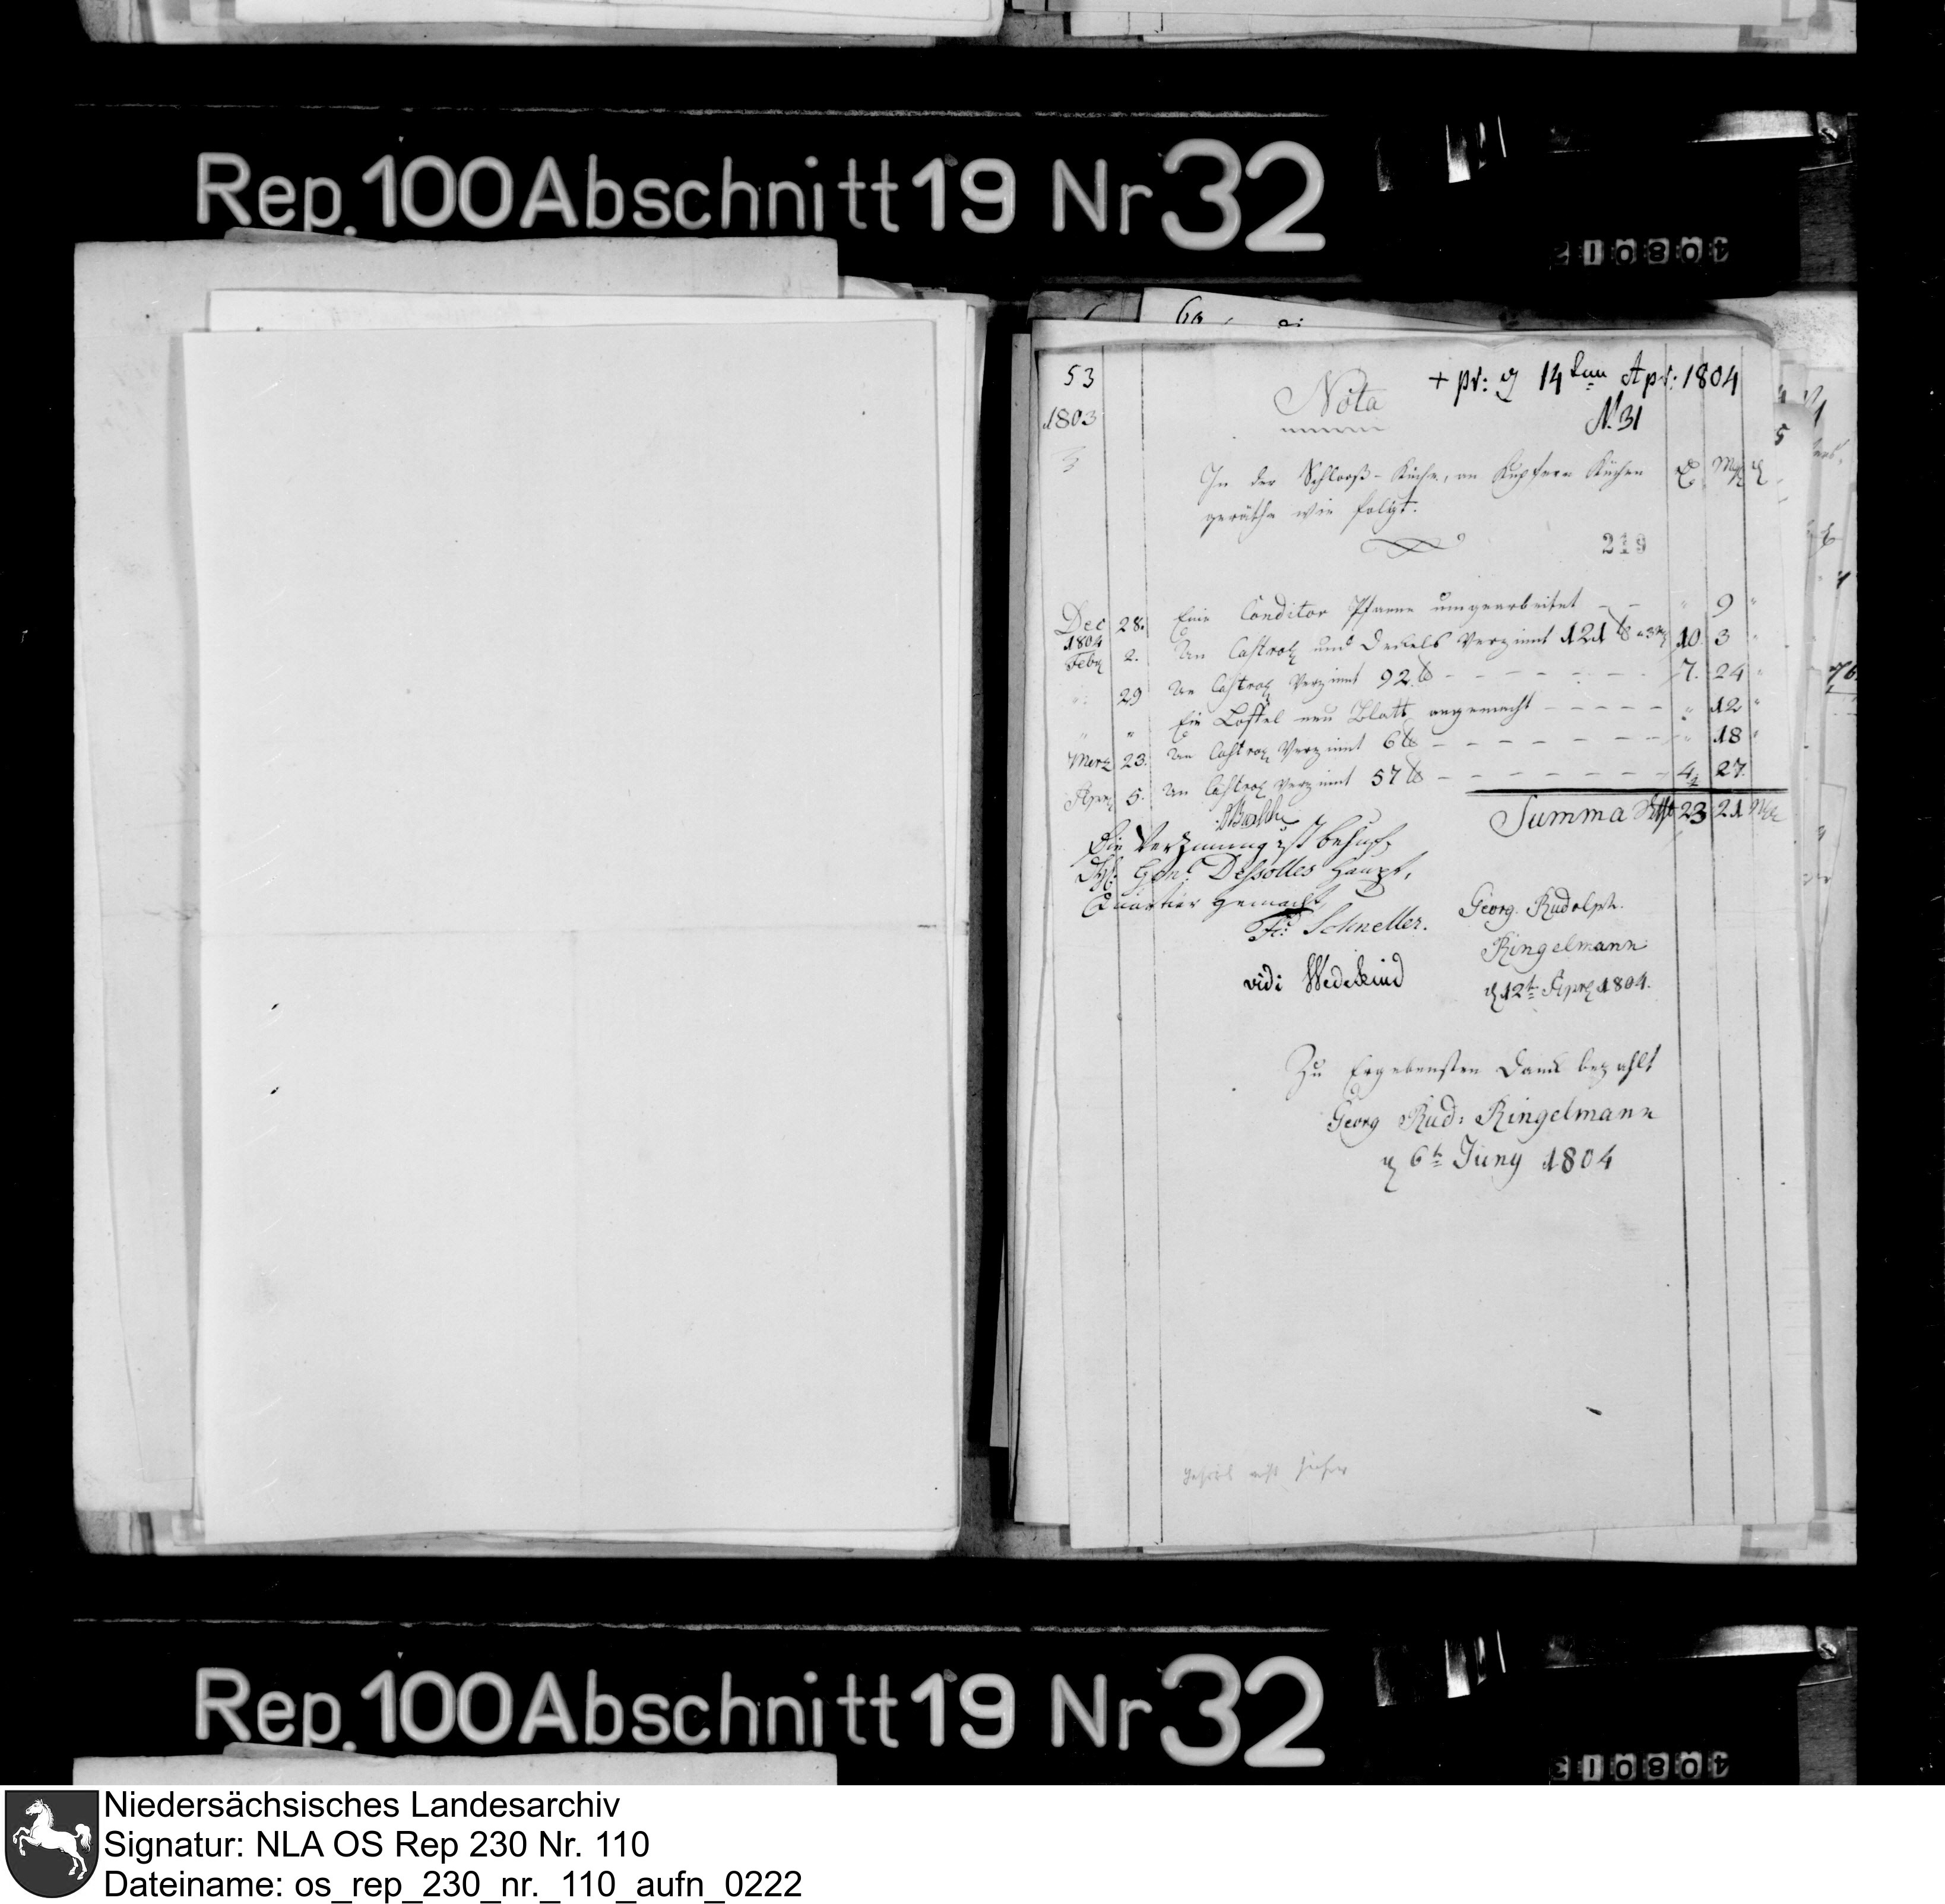 Rep. 100 Abschnitt 19 Nr 32
53
+ pr: d 14ten Apr: 1804
Nota
1803
N. 31
In der Schloß-Küche, an Kupfern Küchen
geräthe wie folgt.
219
Dec 28. Eine Conditor Pfanne umgearbeitet - - " 9 "
1804
Febr 2. An Castrol und Deckels Verzinnt 121 ℔ a 3 mg 10. 3 "
" 29 An Castrol Verzinnt 92 ℔ - - - - - - - 7. 24 "
" " Ein Löffel neu Blatt angemacht - - - - - " 12 "
Merz 23. An Castrol Verzinnt 6 ℔ - - - - - - - " 18 "
Apr 5. An Castrol Verzinnt 57 ℔ - - - - - - - 4. 27.
Summa 23 21
Die Verzinnung ist behuf
Genl. Dessolles Haupt,
Quartier gemacht,
Schneller.
vidi Wedekind
Georg. Rudolph.
Ringelmann
d 12t Apr 1804.
Zu Ergebensten Dank bezahlt
Georg Rud: Ringelmann
d 6t Juny 1804
Rep. 100 Abschnitt 19 Nr 32
Niedersächsisches Landesarchiv
Signatur: NLA OS Rep 230 Nr. 110
Dateiname: os_rep_230_nr._110_aufn_0222